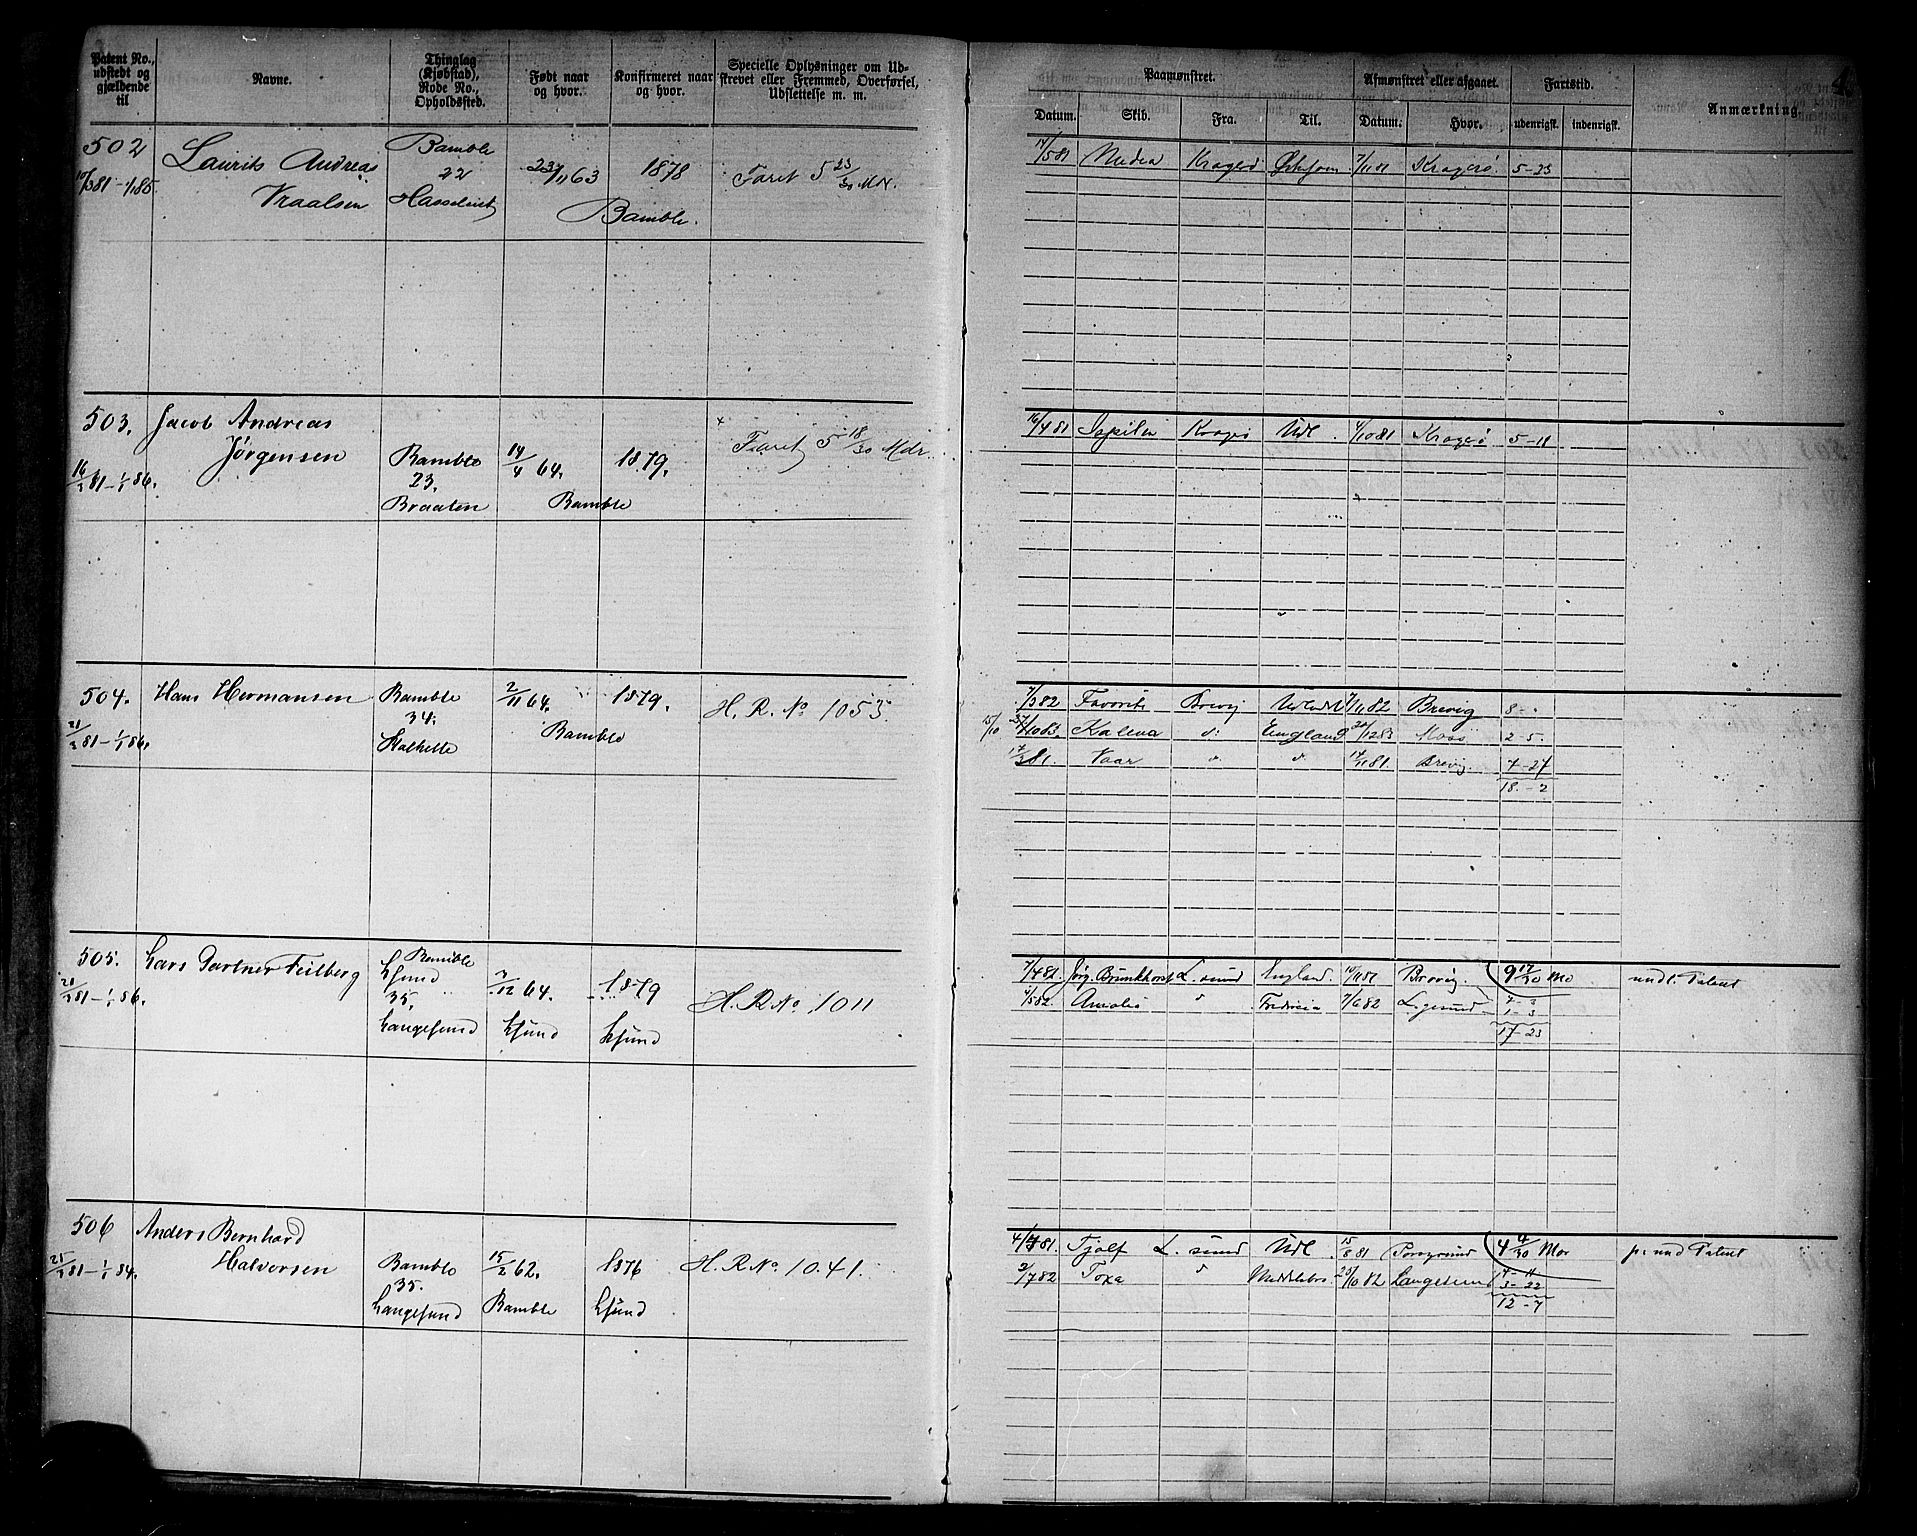 Patent No., udstedt og gjældende til
Navne.
Thinglag (Kjøbstad), Rode No., Opholdssted.
Født naar og hvor.
Konfirmeret naar og hvor.
Specielle Oplysninger om Udskrevet eller Fremmed, Overførsel, Udslettelse m. m.
Paamønstret.
Datum.
Skib.
Fra.
Til.
Afmønstret eller afgaaet.
Datum.
Hvor.
Fartstid.
udenrigsk.
indenrigsk.
Anmærkning.
502
Laurits Andreas
Kraalsen
Bamble
22
23/11 63
1878
Bamble.
Faret 5 23/30 Mdr.
14/5 81
Kragerø
7/11 81
Kragerø.
5-23
503.
Jacob Andreas
Jörgensen
16/3 81 - 1/1 86.
Bamble
23.
Braaten
14/4 64.
1879.
Bamble
Faret 5 18/30 Mdr.
16/4 81
Kragerø
Udl.
4/10 81
Kragerø
5-18
504.
Hans Hermansen
21/3 81 - 1/1 86.
Bamble
34.
2/11 64.
1879.
Bamble
H. R. No 1053.
7/3 82
Favorit
Brevig
Udlandet
7/11 82
Brevig
8-"
15/10
Kaleva
England
20/12 83
Moss
2-5.
17/3 81.
Vaar
14/11 81.
Brevig.
7-27
18-2
505.
Lars Gartner Feilberg
21/3 81 - 1/1 86.
Bamble
Lsund
35.
Langesund
7/12 64.
Lsund
1879
Lsund
H. R. No 1011
7/4 82
Jørg. Brunkhorst
L. sund
England
Brevig.
9 17/30 Mo
undl. Patent
4/5 82.
Fredricia
7/6 82
L.gesund
7-3
1-3
17-23
506
Anders Bernhard
Halvorsen
21/3 81 - 1/1 84.
Bamble
35.
Langesund
15/2 62.
Bamble
1876
Lsund
H. R. No. 1041.
4/4 81.
Tjalf
L. sund
Udl
15/8 81
Porsgrund
4 4/30 Mdr
p: und Patent
2/7 82
Toxa
25/10 82
Langesund
4-11
3-22
12-7